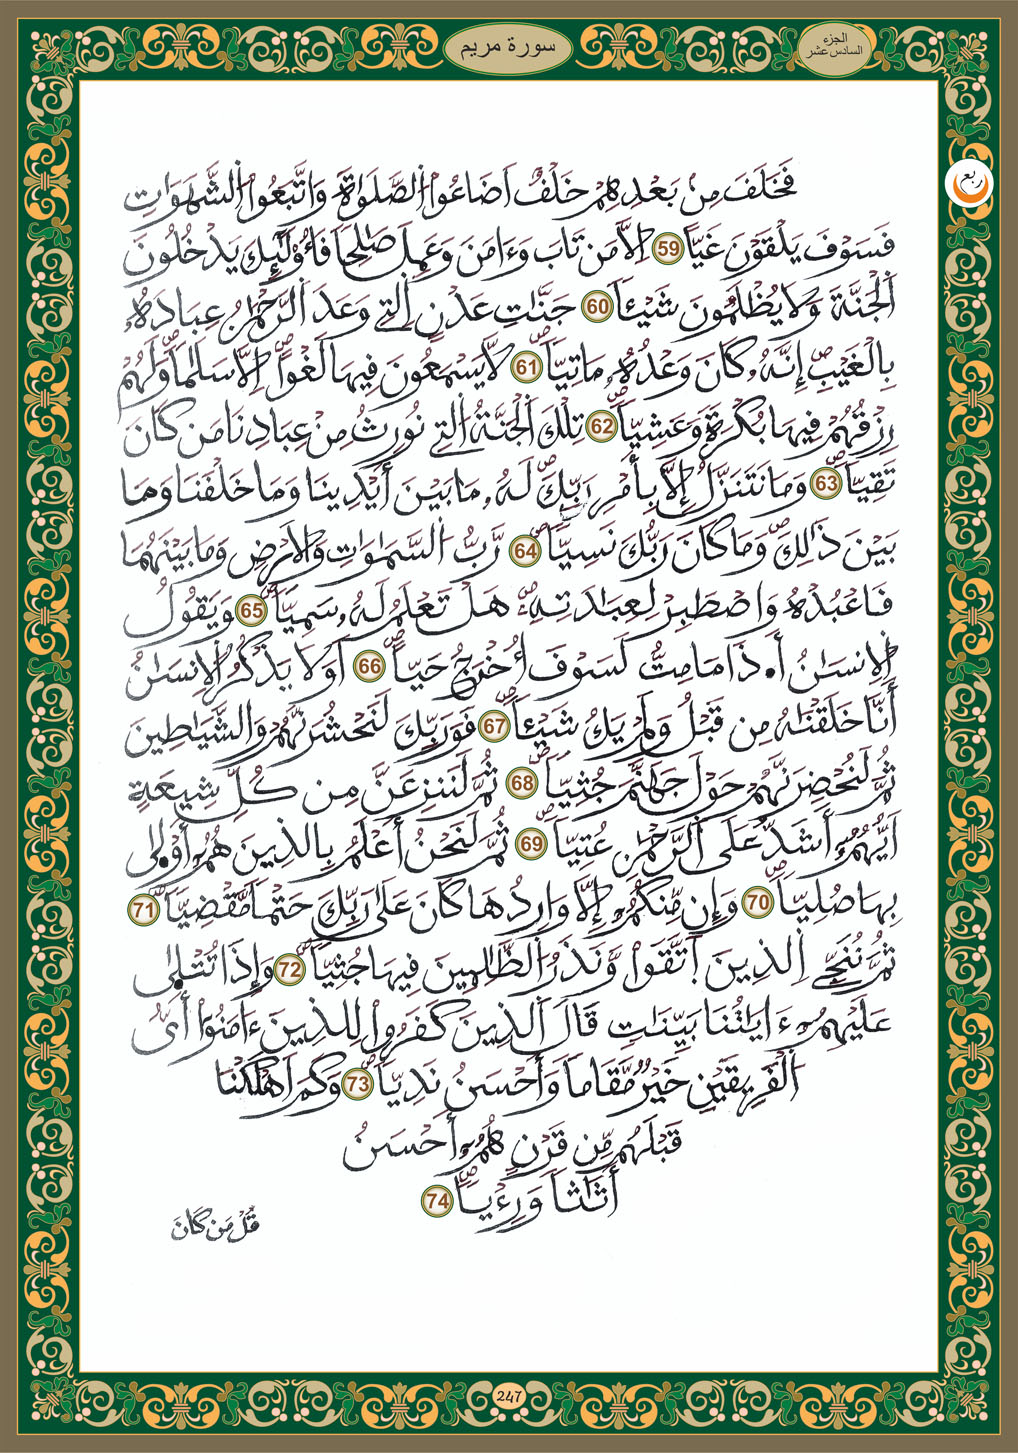 سورة مريم
الجزء
السادس عشر
ربع
فَخَلَفَ مِنۢ بَعْدِهِمْ خَلْفٌ اَضَاعُوا اُ۬لصَّلَوٰةَ وَاتَّبَعُوا اُ۬لشَّهَوَٰتِ
فَسَوْفَ يَلْقَوْنَ غَيّاً 59 اِلَّا مَن تَابَ وَءَامَنَ وَعَمِلَ صَٰلِحاً فَأُوْلَٰٓئِكَ يَدْخُلُونَ
اَ۬لْجَنَّةَ وَلَا يُظْلَمُونَ شَيْـٔاً 60 جَنَّٰتِ عَدْنٍ اِ۬لتِے وَعَدَ اَ۬لرَّحْمَٰنُ عِبَادَهُۥ
بِالْغَيْبِ إِنَّهُۥ كَانَ وَعْدُهُۥ مَاتِيّاً 61 لَّا يَسْمَعُونَ فِيهَا لَغْواً اِلَّا سَلَٰماً وَلَهُمْ
رِزْقُهُمْ فِيهَا بُكْرَةً وَعَشِيّاً 62 تِلْكَ اَ۬لْجَنَّةُ اُ۬لتِے نُورِثُ مِنْ عِبَادِنَا مَن كَانَ
تَقِيّاً 63 وَمَا نَتَنَزَّلُ إِلَّا بِأَمْرِ رَبِّكَ لَهُۥ مَا بَيْنَ أَيْدِينَا وَمَا خَلْفَنَا وَمَا
بَيْنَ ذَٰلِكَ وَمَا كَانَ رَبُّكَ نَسِيّاً 64 رَّبُّ اُ۬لسَّمَٰوَٰتِ وَالَارْضِ وَمَا بَيْنَهُمَا
فَاعْبُدْهُ وَاصْطَبِرْ لِعِبَٰدَتِهِۦ هَلْ تَعْلَمُ لَهُۥ سَمِيّاً 65 وَيَقُولُ
اُ۬لِانسَٰنُ أَ.ذَا مَا مِتُّ لَسَوْفَ أُخْرَجُ حَيّاً 66 اَوَلَا يَذْكُرُ اُ۬لِانسَٰنُ
أَنَّا خَلَقْنَٰهُ مِن قَبْلُ وَلَمْ يَكُ شَيْـٔاً 67 فَوَرَبِّكَ لَنَحْشُرَنَّهُمْ وَالشَّيَٰطِينَ
ثُمَّ لَنُحْضِرَنَّهُمْ حَوْلَ جَهَنَّمَ جُثِيّاً 68 ثُمَّ لَنَنزِعَنَّ مِن كُلِّ شِيعَةٍ
اَيُّهُمُۥٓ أَشَدُّ عَلَى اَ۬لرَّحْمَٰنِ عُتِيّاً 69 ثُمَّ لَنَحْنُ أَعْلَمُ بِالذِينَ هُمُۥٓ أَوْلَىٰ
بِهَا صُلِيّاً 70 وَإِن مِّنكُمُۥٓ إِلَّا وَارِدُهَا كَانَ عَلَىٰ رَبِّكَ حَتْماً مَّقْضِيّاً 71
ثُمَّ نُنَجِّے اِ۬لذِينَ اَ۪تَّقَوا وَّنَذَرُ اُ۬لظَّٰلِمِينَ فِيهَا جُثِيّاً 72 وَإِذَا تُتْلَىٰ
عَلَيْهِمُۥٓ ءَايَٰتُنَا بَيِّنَٰتٍ قَالَ اَ۬لذِينَ كَفَرُوا لِلذِينَ ءَامَنُوٓا أَيُّ
اُ۬لْفَرِيقَيْنِ خَيْرٌ مَّقَاماً وَأَحْسَنُ نَدِيّاً 73 وَكَمَ اَهْلَكْنَا
قَبْلَهُم مِّن قَرْنٍ هُمُۥٓ أَحْسَنُ
أَثَٰثاً وَرِءْياً 74
قُلْ مَن كَانَ
247